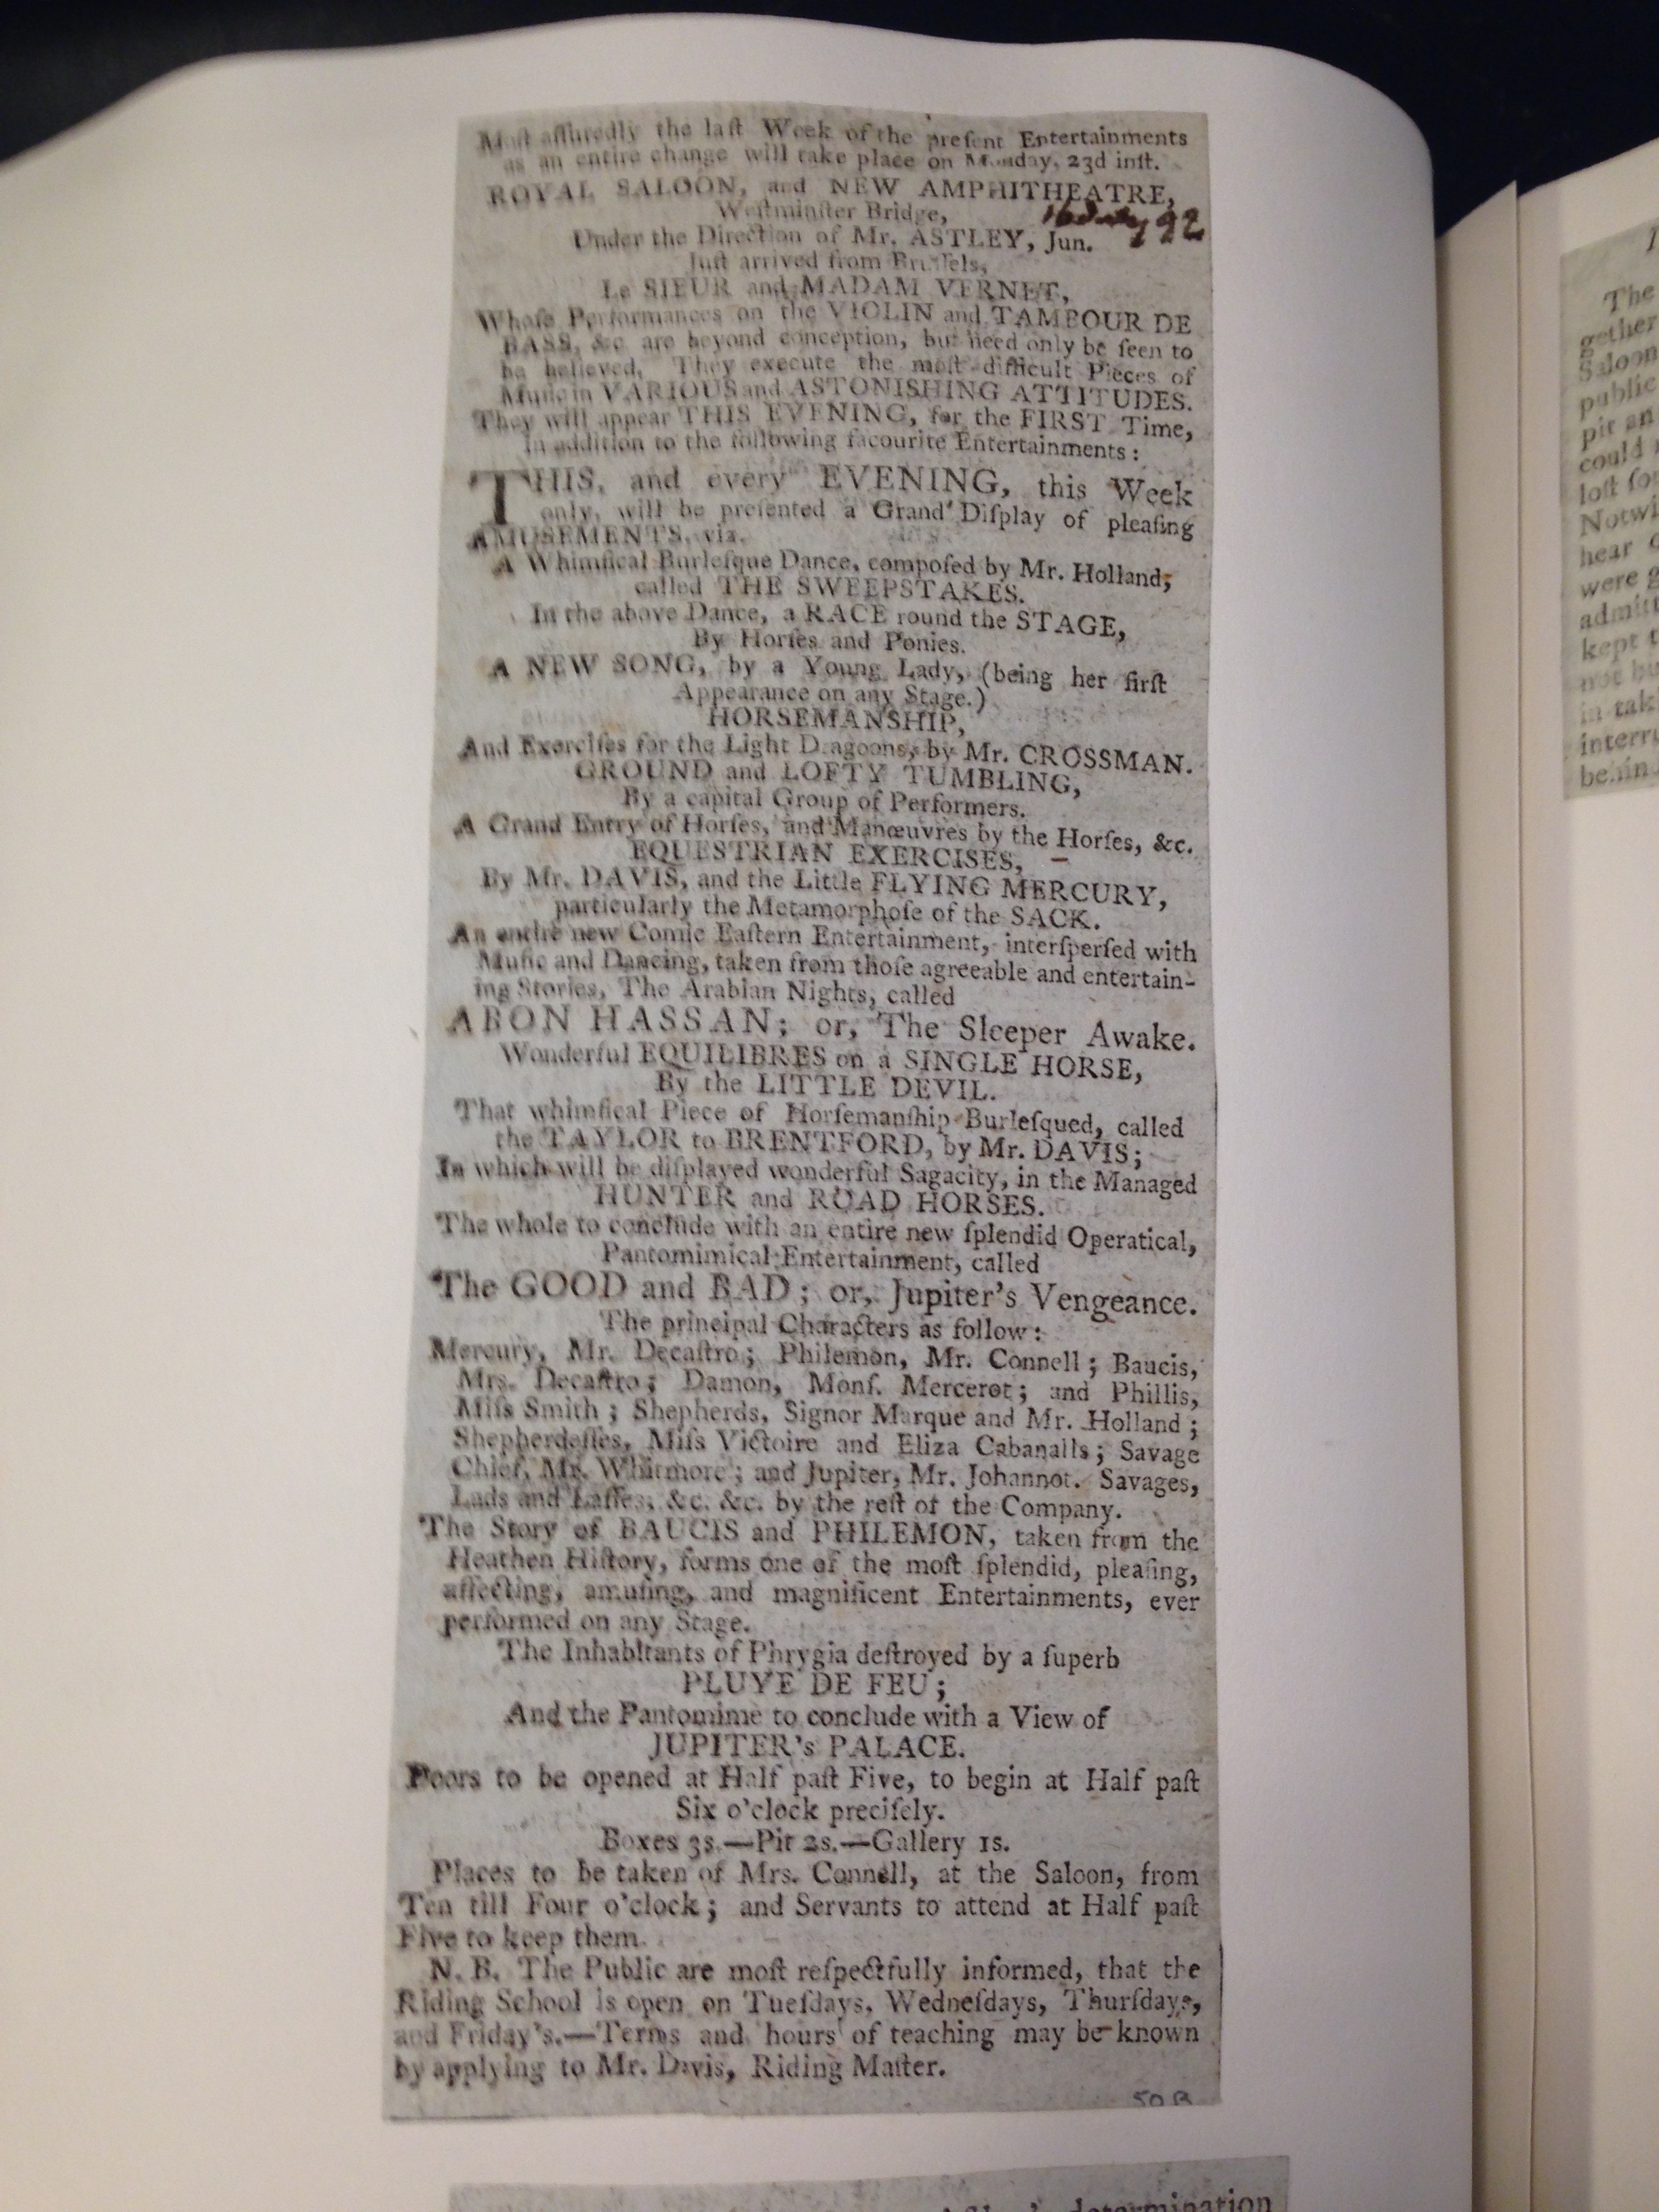 Moſt aſſuredly the laſt Week of the preſent Entertainments
as an entire change will take place on Monday, 23d inſt.
ROYAL SALOON, and NEW AMPHITHEATRE,
Weſtminſter Bridge,
16 July 92
Under the Direction of Mr. ASTLEY, Jun.
Juſt arrived from Bruſſels,
Le SIEUR and MADAM VERNET,
Whoſe Performances on the VIOLIN and TAMBOUR DE
BASS, &c. are beyond conception, but need only be ſeen to
be believed. They execute the moſt difficult Pieces of
Muſic in VARIOUS and ASTONISHING ATTITUDES.
They will appear THIS EVENING, for the FIRST Time,
in addition to the following facourite Entertainments:
THIS, and every EVENING, this Week
only, will be preſented a Grand Diſplay of pleaſing
AMUSEMENTS, viz.
A Whimſical Burleſque Dance, compoſed by Mr. Holland,
called THE SWEEPSTAKES.
In the above Dance, a RACE round the STAGE,
By Horſes and Ponies.
A NEW SONG, by a Young Lady, (being her firſt
Appearance on any Stage.)
HORSEMANSHIP,
And Exerciſes for the Light Dragoons, by Mr. CROSSMAN.
GROUND and LOFTY TUMBLING,
By a capital Group of Performers.
A Grand Entry of Horſes, and Manœuvres by the Horſes, &c.
EQUESTRIAN EXERCISES,
By Mr. DAVIS, and the Little FLYING MERCURY,
particularly the Metamorphoſe of the SACK.
An entire new Comic Eaſtern Entertainment, interſperſed with
Muſic and Dancing, taken from thoſe agreeable and entertain-
ing Stories, The Arabian Nights, called
ABON HASSAN; or, The Sleeper Awake.
Wonderful EQUILIBRES on a SINGLE HORSE,
By the LITTLE DEVIL.
That whimſical Piece of Horſemanſhip Burleſqued, called
the TAYLOR to BRENTFORD, by Mr. DAVIS;
In which will be diſplayed wonderful Sagacity, in the Managed
HUNTER and ROAD HORSES.
The whole to conclude with an entire new ſplendid Operatical,
Pantomimical Entertainment, called
The GOOD and BAD; or, Jupiter's Vengeance.
The principal Characters as follow:
Mercury, Mr. Decaſtro; Philemon, Mr. Connell; Baucis,
Mrs. Decaſtro; Damon, Monſ. Mercerot; and Phillis,
Miſs Smith; Shepherds, Signor Marque and Mr. Holland;
Shepherdeſſes, Miſs Victoire and Eliza Cabanalls; Savage
Chief, Mr. Whitmore; and Jupiter, Mr. Johannot. Savages,
Lads and Laſſes, &c. &c. by the reſt of the Company.
The Story of BAUCIS and PHILEMON, taken from the
Heathen Hiſtory, forms one of the moſt ſplendid, pleaſing,
affecting, amuſing, and magnificent Entertainments, ever
performed on any Stage.
The Inhabitants of Phrygia deſtroyed by a ſuperb
PLUYE DE FEU;
And the Pantomime to conclude with a View of
JUPITER's PALACE.
Doors to be opened at Half paſt Five, to begin at Half paſt
Six o'clock preciſely.
Boxes 3s.—Pit 2s.—Gallery 1s.
Places to be taken of Mrs. Connell, at the Saloon, from
Ten till Four o'clock; and Servants to attend at Half paſt
Five to keep them.
N. B. The Public are moſt reſpectfully informed, that the
Riding School is open on Tueſdays, Wedneſdays, Thurſdays,
and Friday's.—Terms and hours of teaching may be known
by applying to Mr. Davis, Riding Maſter.
50 B
determination
The
gether
Saloon
public
pit an
could
loſt ſo
Notwi
hear
were g
admitt
kept t
in tak
interru
behin